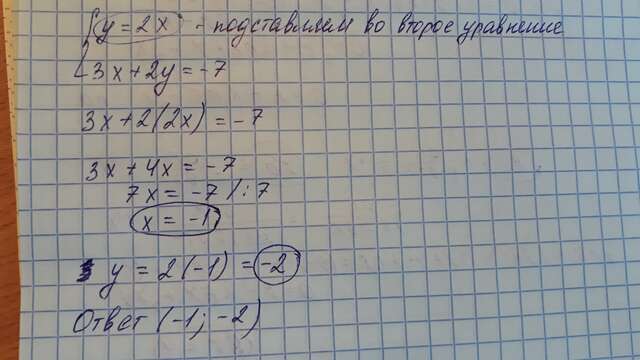 y = 2x - подставляем во второе уравнение
3x + 2y = -7
3x + 2(2x) = -7
3x + 4x = -7
7x = -7 / : 7
x = -1
y = 2(-1) = -2
Ответ (-1; -2)